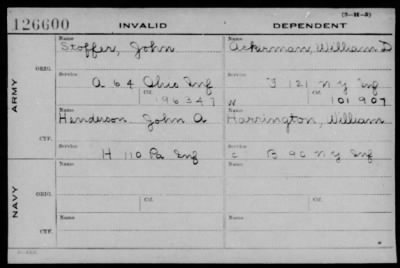 (3-H-3)
126600 INVALID DEPENDENT
Name Name
Stoffer, John Ackerman, William D
ORIG. Service Service
A 64 Ohio Inf I 121 N Y Inf
Ctf. Ctf.
196347 W 101907
ARMY
Name Name
Henderson John A Harrington, William
CTF. Service Service
H 110 Pa Inf C B 90 N Y Inf
NAVY
Name Name
ORIG. Ctf. Ctf.
Name Name
CTF.